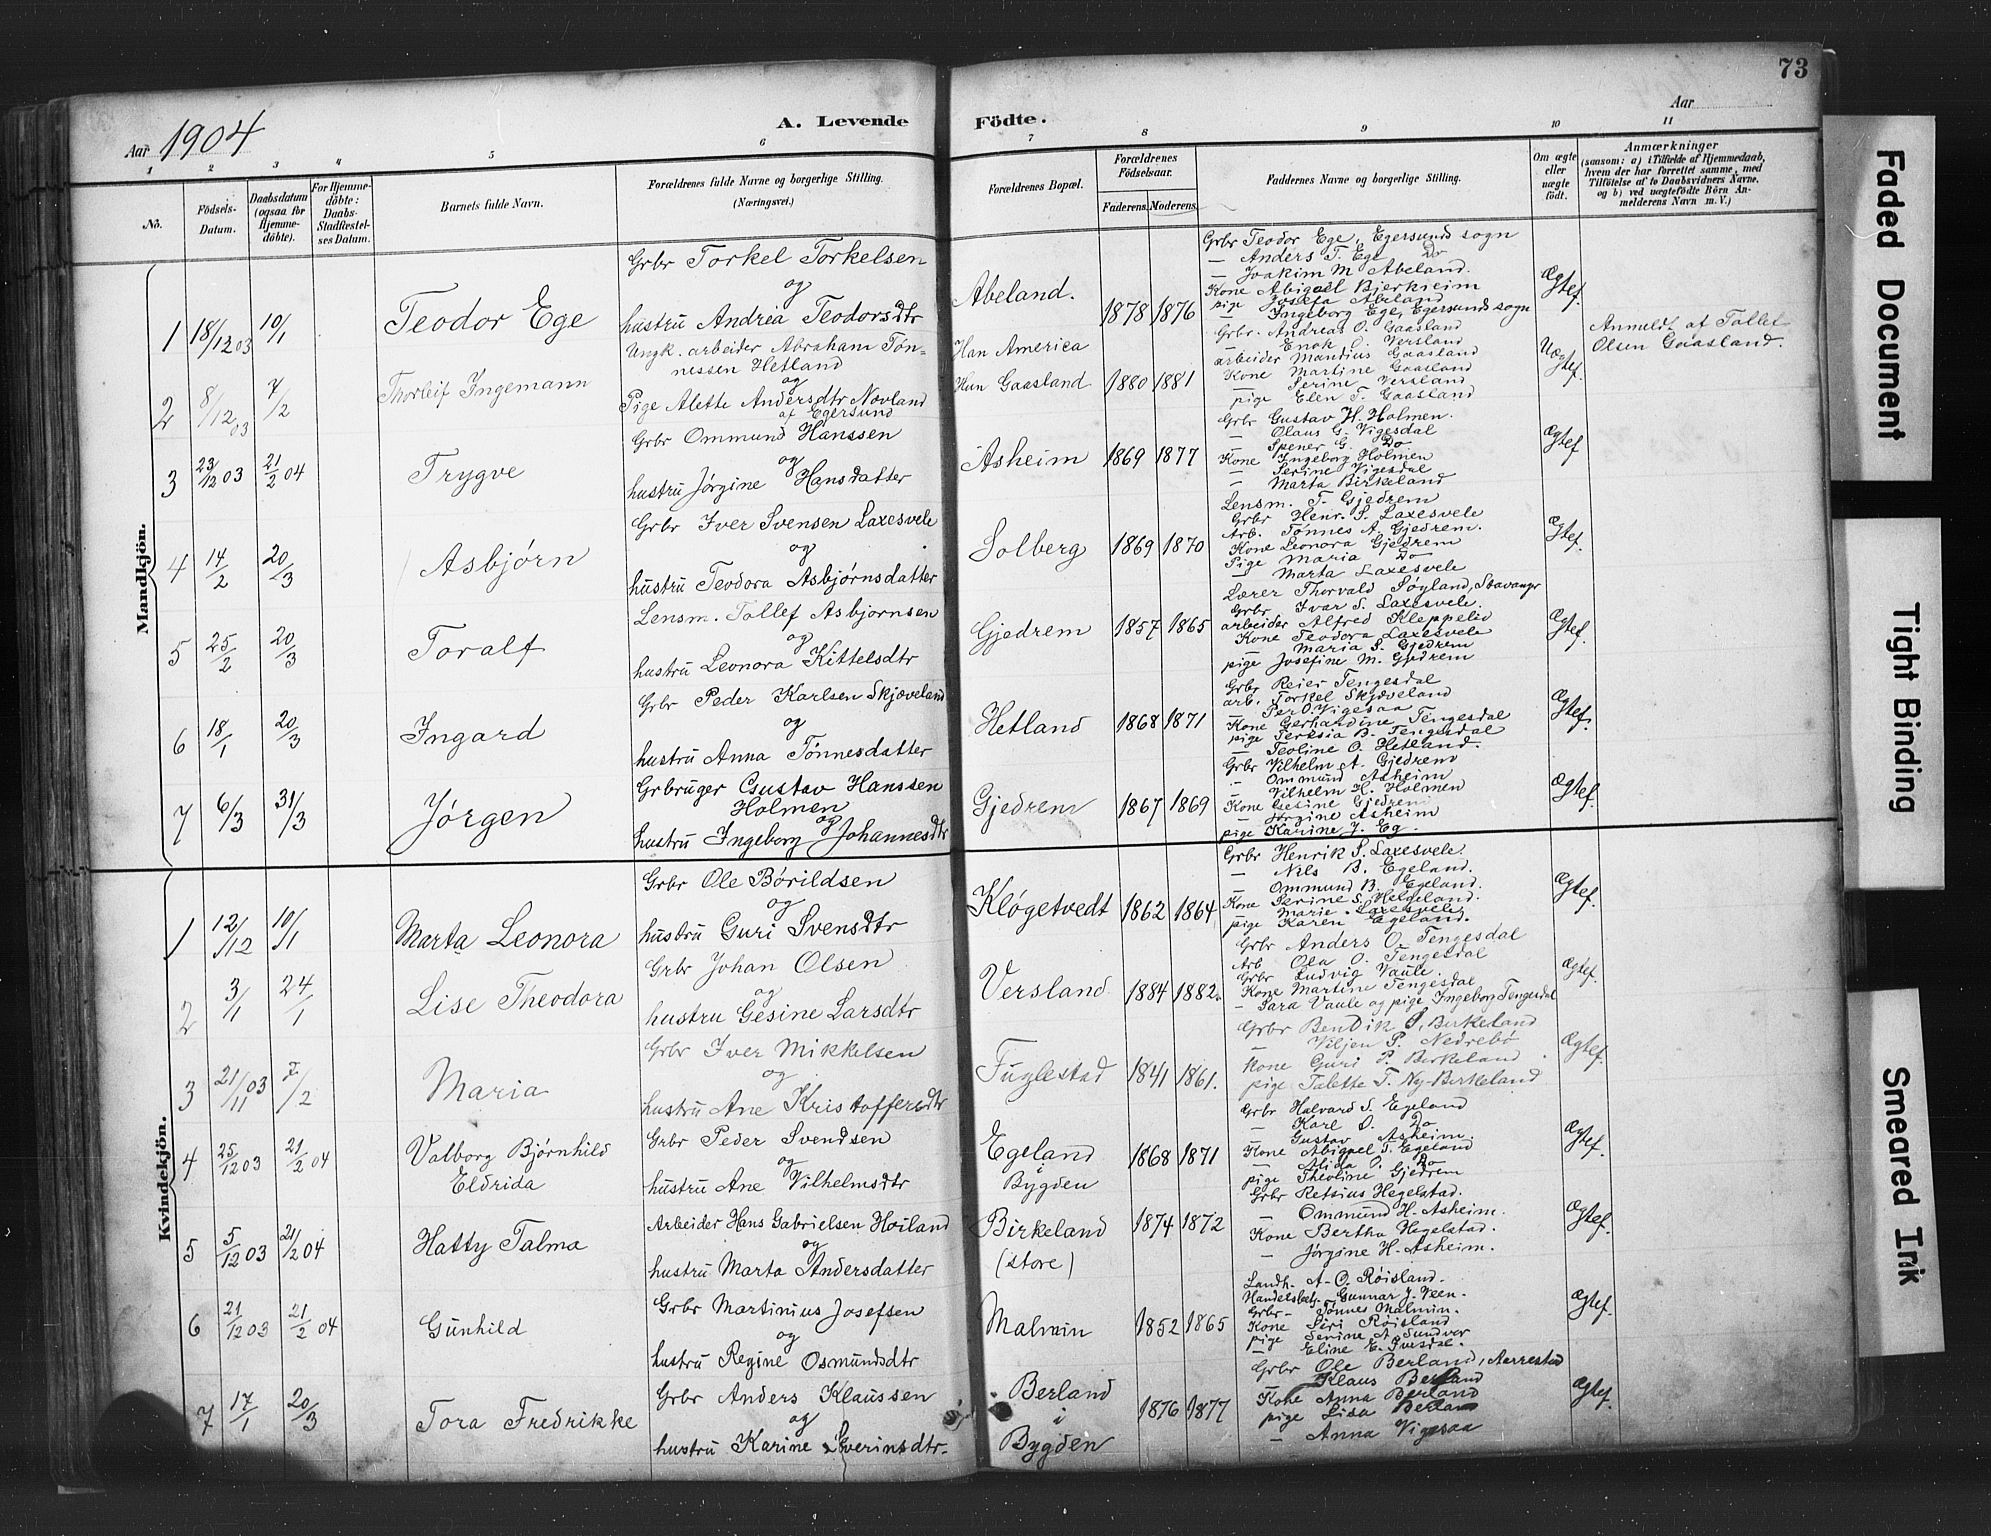 73
Aar 1904
A. Levende Födte.
Aar
1 2 3 4 5 6 7 8 9 10 11
No.
Födsels-Datum.
Daabsdatum (ogsaa for Hjemme-döbte).
For Hjemme-döbte: Daabs-Stadfæstel-ses Datum.
Barnets fulde Navn.
Forældrenes fulde Navne og borgerlige Stilling.
(Næringsvei.)
Forældrenes Bopæl.
Forældrenes Födselsaar.
Faderens. Moderens.
Faddernes Navne og borgerlige Stilling.
Om ægte eller uægte födt.
Anmærkninger
(saasom: a) i Tilfælde af Hjemmedaab,
hvem der har forrettet samme, med
Tilföielse af to Daabsvidners Navne,
og b) ved uægtefödte Börn An-
melderens Navn m. V.)
Mandkjön.
1 18/12 03 10/1 Teodor Ege
Grbr Torkel Torkelsen
og
hustru Andrea Teodorsdtr
Abeland. 1878 1876
Grbr Teodor Ege, Egersunds sogn
— Anders T. Ege Do
— Joakim M. Abeland.
Kone Abigael Bjerkreim
pige Josefa Abeland
— Ingeborg Ege, Egersunds sogn
Ægtef.
2 8/12 03 7/2 Thorleif Ingemann
Ungk. arbeider Abraham Tøn-
nessen Hetland
og
Pige Alette Andersdtr Novland
af Egersund
Han America
Hun Gaasland 1880 1881
Grbr. Andreas O. Gaasland
— Enok O. Versland
arbeider Mandius Gaasland
Kone Martine Gaasland
— Serine Versland
pige Elen T. Gaasland
Uægtef.
Anmeldt af Tollef
Olsen Gaasland.
3 23/12 03 21/2 04 Trygve
Grbr Ommund Hanssen
og
hustru Jørgine Hansdatter
Asheim 1869 1877
Grbr Gustav H. Holmen.
— Olaus G. Vigesdal
— Spener G. Do
Kone Ingeborg Holmen
— Serine Vigesdal
— Marta Birkeland
Ægtef
4 14/2 20/3 Asbjørn
Grbr Iver Svensen Laxesvele
og
hustru Teodora Asbjørnsdatter
Solberg 1869 1870
Lensm. T. Gjedrem
Grbr Henr. S. Laxesvele
Arb. Tønnes A. Gjedrem.
Kone Leonora Gjedrem
Pige Maria Do
— Marta Laxesvele
Ægtef.
5 25/2 20/3 Toralf
Lensm. Tollef Asbjørnsen
og
hustru Leonora Kittelsdtr
Gjedrem 1857 1865
Lærer Thorvald Søyland, Stavanger
Grbr Ivar S. Laxesvele.
arbeider Alfred Kleppelid
Kone Teodora Laxesvele
— Maria S. Gjedrem
pige Josefine M. Gjedrem
Ægtef.
6 18/1 20/3 Ingard
Grbr Peder Karlsen Skjæveland
og
hustru Anna Tønnesdatter
Hetland 1868 1871
Grbr Reier Tengesdal
arb. Torkel Skjæveland
— Per O. Vigesaa
Kone Gerhardine Tengesdal
pige Terksia B. Tengesdal
— Teoline O. Hetland.
Ægtef.
7 6/3 31/3 Jørgen
Grbruger Gustav Hanssen
Holmen
og
hustru Ingeborg Johannesdtr
Gjedrem 1867 1869
Grbr Vilhelm A. Gjedrem
— Ommund Asheim
— Vilhelm H. Holmen
Kone Gesine Gjedrem
— Jørgine Asheim
pige Karine J. Eg.
Ægtef.
Kvindekjön.
1 12/12 10/1 Marta Leonora
Grbr Ole Børildsen
og
hustru Guri Svensdtr
Kløgetvedt 1862 1864
Grbr Henrik S. Laxesvele.
— Nils B. Egeland.
— Ommund B. Egeland.
Kone Serine S. Helgeland.
— Marie Laxesvele
pige Karen Egeland.
Ægtef.
2 3/1 24/1 Lise Theodora
Grbr Johan Olsen
og
hustru Gesine Larsdtr
Versland 1884 1882.
Grbr Anders O. Tengesdal
Arb Ola O. Tengesdal
Grbr Ludvig Vaule.
Kone Martine Tengesdal
— Sara Vaule og pige Ingeborg Tengesdal
Ægtef.
3 21/11 03 7/2 Maria
Grbr Iver Mikkelsen
og
hustru Ane Kristoffersdtr
Fuglestad 1841 1861.
Grbr Bendik S. Birkeland
— Viljen P. Nedrebø
Kone Guri P. Birkeland
pige Talette T. Ny-Birkeland
Ægtef.
4 25/12 03 21/2 04 Valborg Bjørnhild
Eldrida
Grbr Peder Svendsen
og
hustru Ane Vilhelmsdtr
Egeland
i
Bygden 1868 1871
Grbr Halvard S. Egeland
— Karl O. Do
— Gustav Asheim.
Kone Abigael T. Egeland
— Alida O. Do
pige Theoline Gjedrem
Ægtef.
5 5/12 03 21/2 04 Hatty Talma
Arbeider Hans Gabrielsen Hoiland
og
hustru Marta Andersdatter
Birkeland
(store) 1874 1872
Grbr Retsius Hegelstad.
— Ommund H. Asheim.
Kone Bertha Hegelstad.
— Jørgine H. Asheim.
Ægtef.
6 21/12 03 21/2 04 Gunhild
Grbr Martinius Josefsen
og
hustru Regine Osmundsdtr
Malmin 1852 1865
Landh. A. O. Røisland.
Handelsbetj. Gunnar J. Veen.
Grbr — Tønnes Malmin.
Kone Siri Røisland
pige Serine A. Sundvor
— Eline E. Ivesdal.
Ægtef.
7 17/1 20/3 Tora Fredrikke
Grbr Anders Klaussen
og
hustru Karine Severinsdtr.
Berland
i
Bygden 1876 1877
Grbr Ole Berland, Aarrestad
— Klaus Berland
Kone Anna Berland
pige Lisa Berland
— Anna Vigesaa
Ægtef.
Faded Document
Tight Binding
Smeared Ink